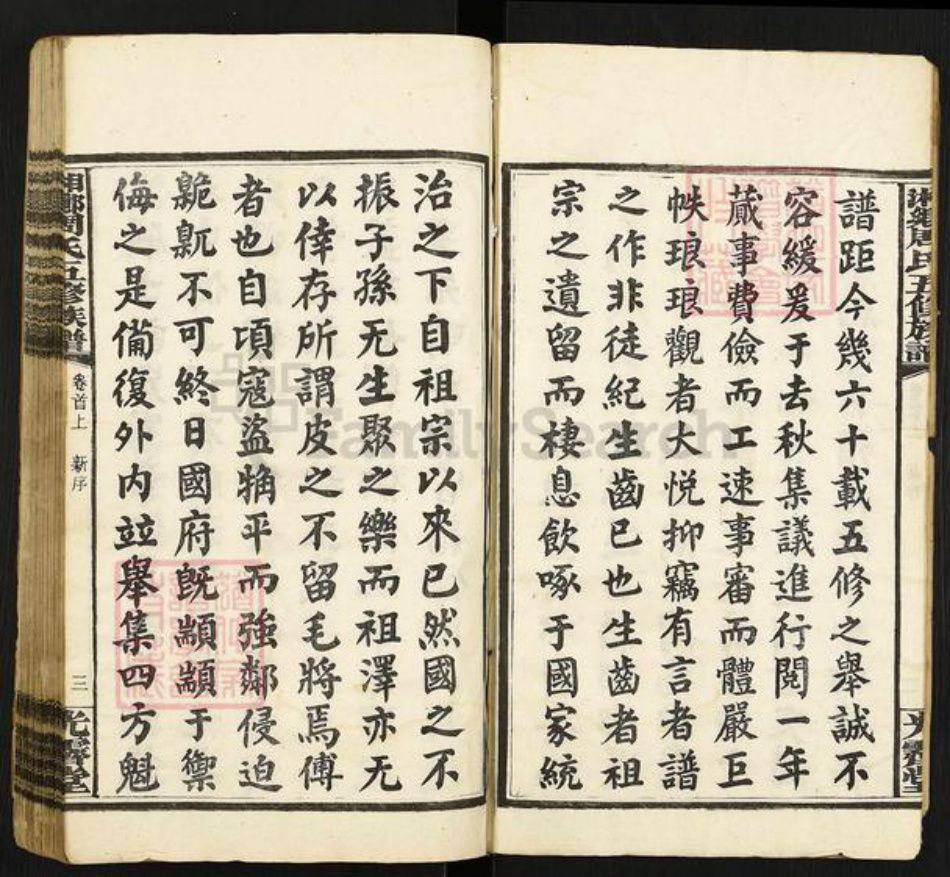 譜距今幾六十載五修之舉誠不
容緩爰于去秋集議進行閱一年
蕆事費儉而工速事審而體嚴巨
帙琅琅觀者大悅抑竊有言者譜
之作非徒紀生齒已也生齒者祖
宗之遺留而棲息飲啄于國家統
治之下自祖宗以來已然國之不
振子孫无生聚之樂而祖澤亦无
以倖存所謂皮之不留毛將焉傅
者也自頃寇盜犄平而強鄰侵迫
臲卼不可終日國府旣顓顓于禦
侮之是備復外内竝舉集四方魁
湘鄉周氏五修族譜
卷首上 新序
三
光霽堂
FamilySearch